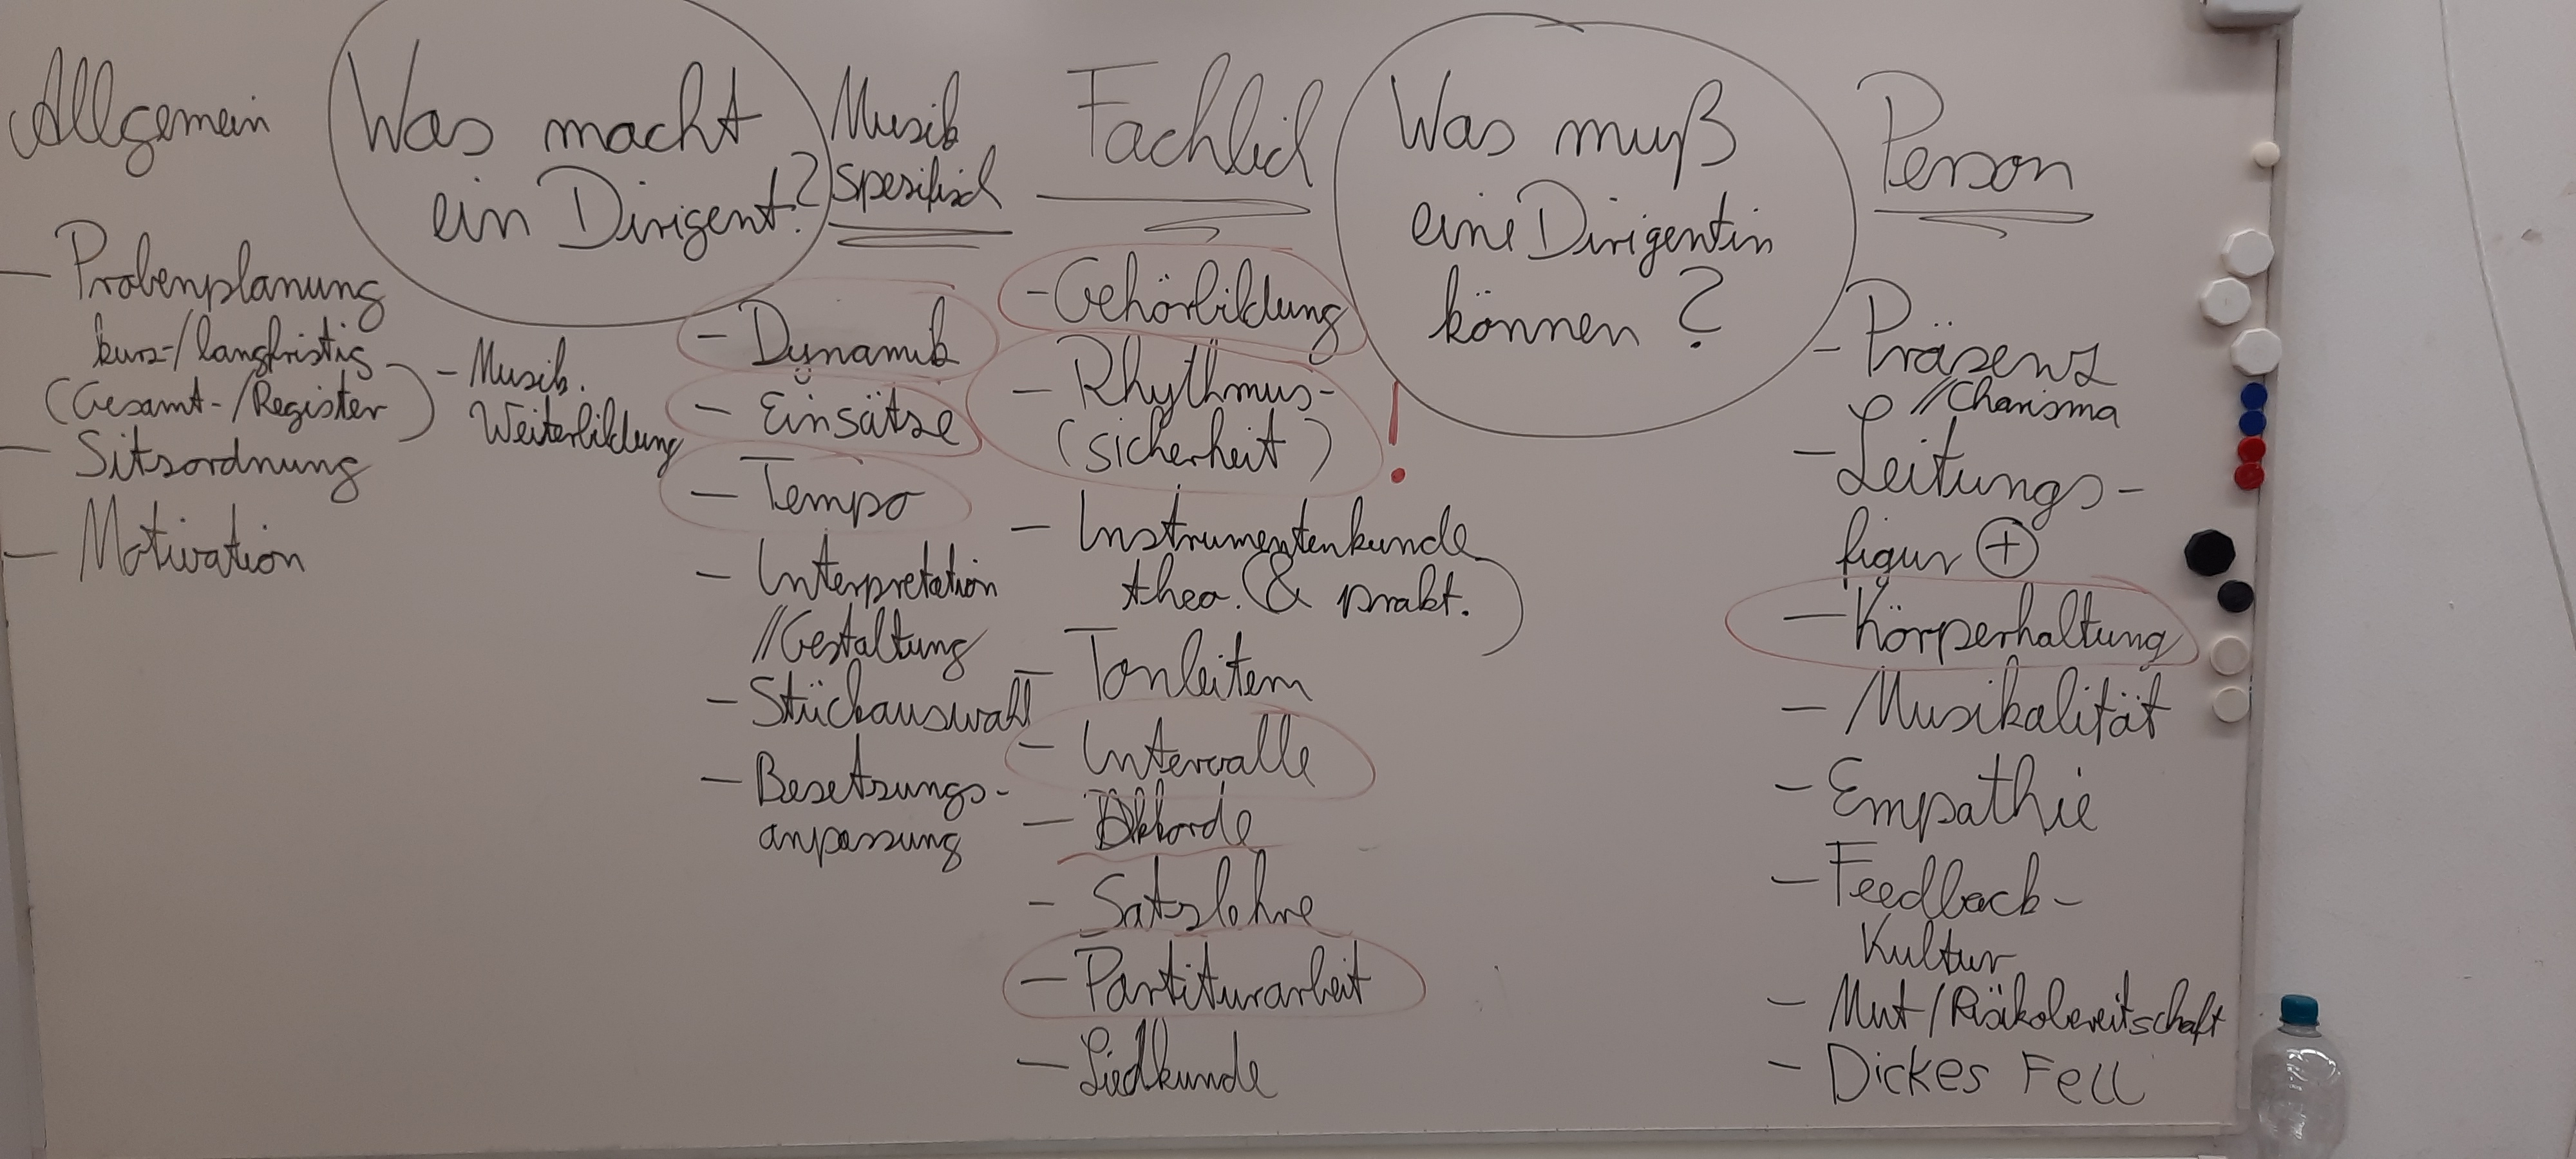 Allgemein
- Probenplanung
kurz-/langfristig
(Gesamt-/Register)
- Sitzordnung
- Motivation
Was macht
ein Dirigent?
- Musik.
Weiterbildung
Musik
spezifisch
- Dynamik
- Einsätze
- Tempo
- Interpretation
//Gestaltung
- Stückauswahl
- Besetzungs-
anpassung
Fachlich
- Gehörbildung
- Rhythmus-
(sicherheit)
!
- Instrumentenkunde
theo. & prakt.)
- Tonleitern
- Intervalle
- Akkorde
- Satzlehre
- Partiturarbeit
- Liedkunde
Was muß
eine Dirigentin
können?
Person
- Präsenz
//Charisma
- Leitungs-
figur +
- Körperhaltung
- Musikalität
- Empathie
- Feedback-
Kultur
- Mut/Risikobereitschaft
- Dickes Fell